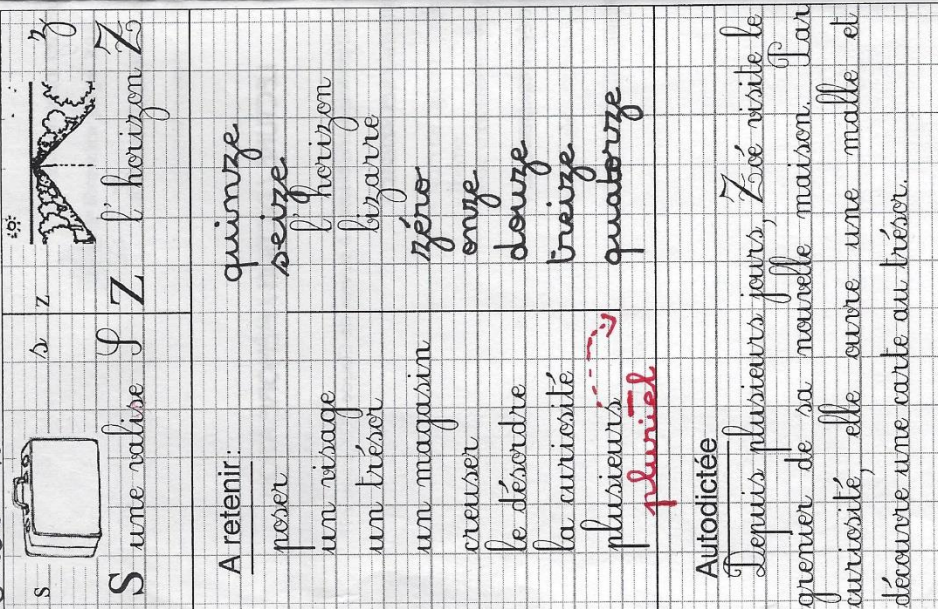 s s z z
S une valise S Z l'horizon Z
A retenir :
poser
un visage
un trésor
un magasin
creuser
le désordre
la curiosité
plusieurs
pluriel
quinze
seize
l'horizon
bizarre
zéro
onze
douze
treize
quatorze
Autodictée
Depuis plusieurs jours, Zoé visite le
grenier de sa nouvelle maison. Par
curiosité, elle ouvre une malle et
découvre une carte au trésor.